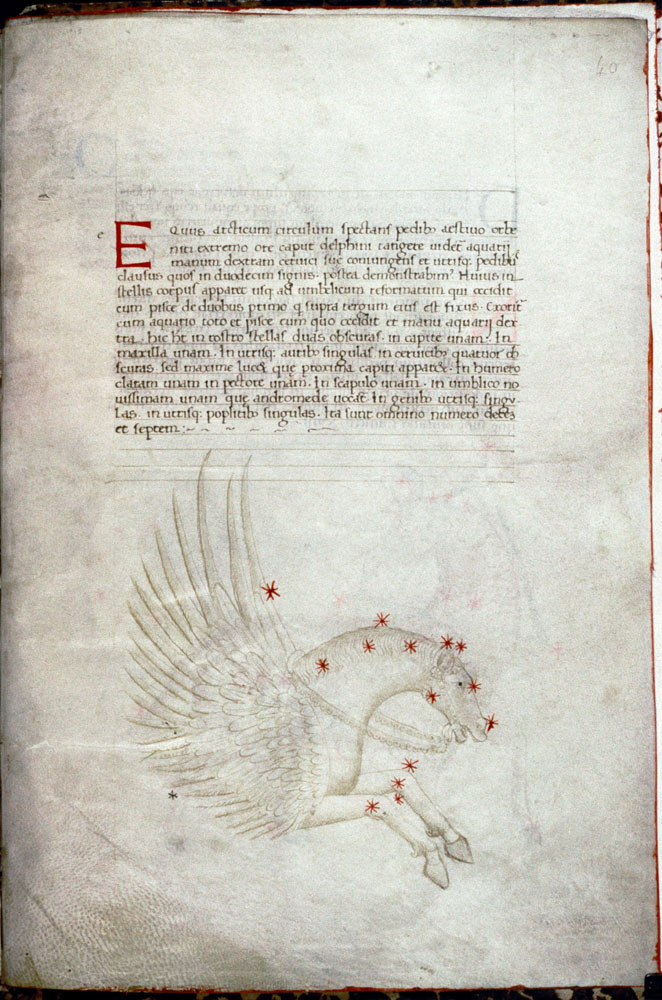 40
e
EQuus arcticum circulum spectans pedibꝰ aestiuo orbe
niti extremo ore caput delphini tangere uidet̄ aquarii
manum dextram ceruici suę coniungens et utrisqꝫ pedibꝰ
clausus quos in duodecim signis. postea demonstrabim᷒. Huius in
stellis corpus apparet usqꝫ ad umbelicum reformatum qui occidit
cum pisce de duobus primo q̄ supra tergum eius est fixus. Exorit᷒
cum aquario toto et pisce cum quo occidit et manu aquarii dex
tra. hic ht̄ in rostro stellas duas obscuras. in capite unam. In
maxilla unam. In utrisqꝫ auribꝰ singulas in ceruicibꝰ quatuor ob
scuras. sed maxime lucet que proxima capiti apparet. In humero
claram unam in pectore unam. In scapulo unam. in umblico no
uissimam unam que andromede uocat᷒. In genibꝰ utrisqꝫ singu
las. in utrisqꝫ poplitibꝰ singulas. Ita sunt omnino numero decē
et septem